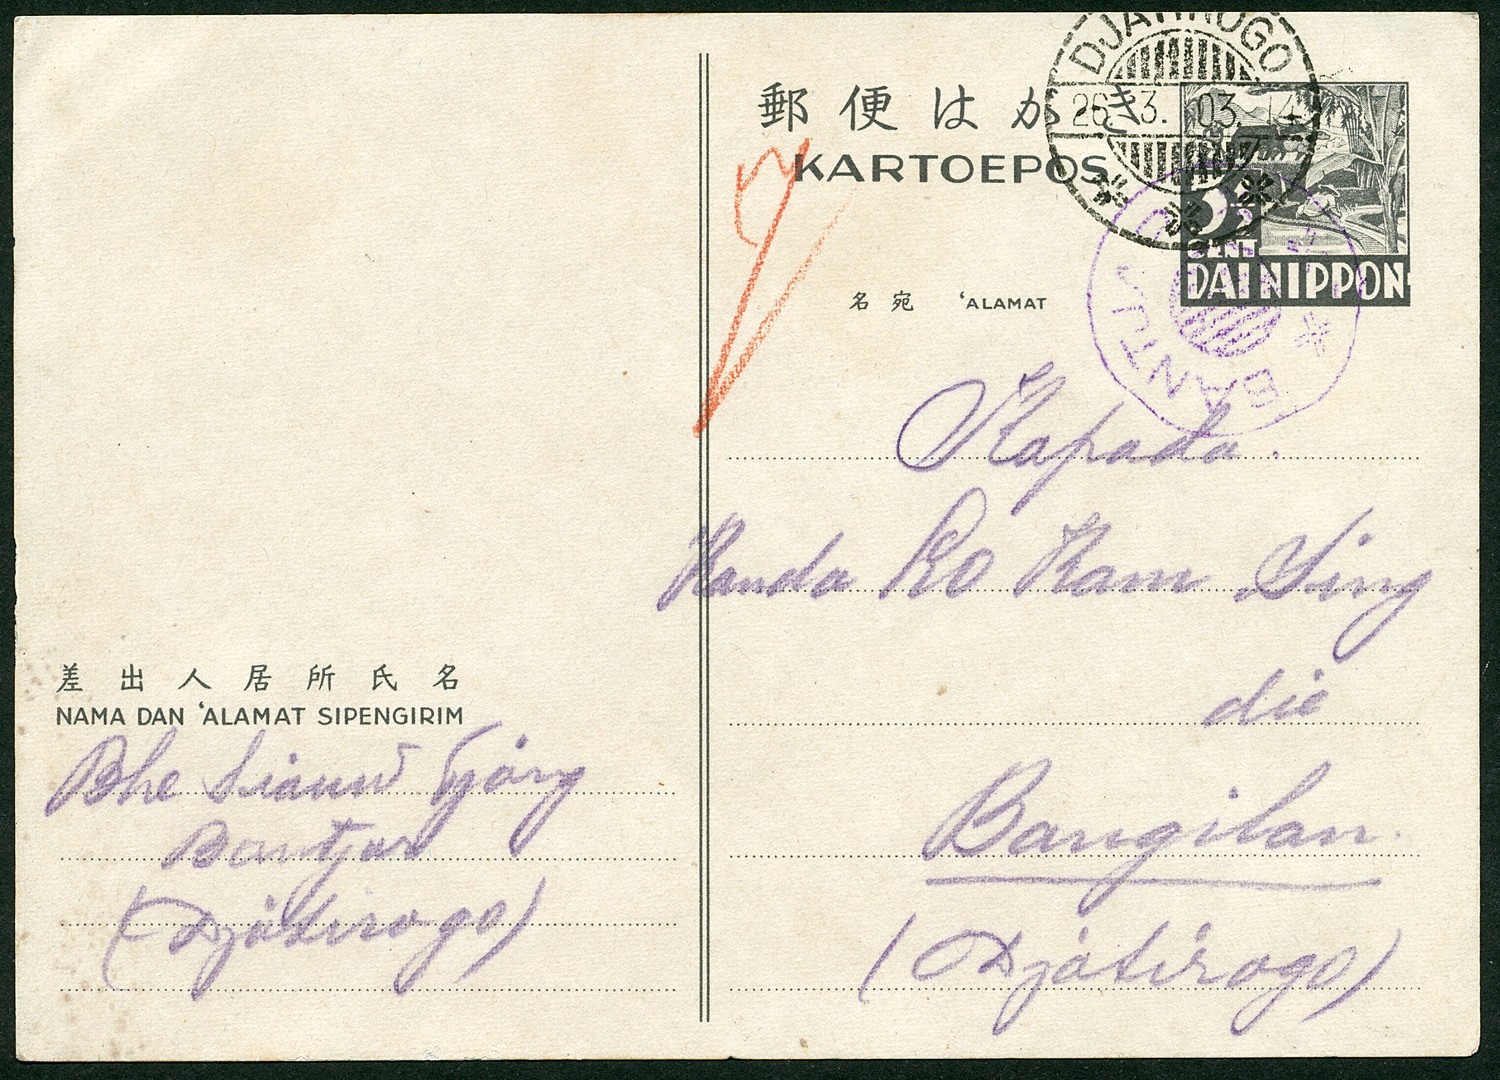 郵便はがき
KARTOEPOS
DJATIROGO
26.3.03.14
3½
CENT
DAI NIPPON
名宛 'ALAMAT
BANTU
Kapada.
Ko Kam Sing
die
Bangilan.
(Djatirogo)
差出人居所氏名
NAMA DAN 'ALAMAT SIPENGIRIM
Bantjar
(Djatirogo)